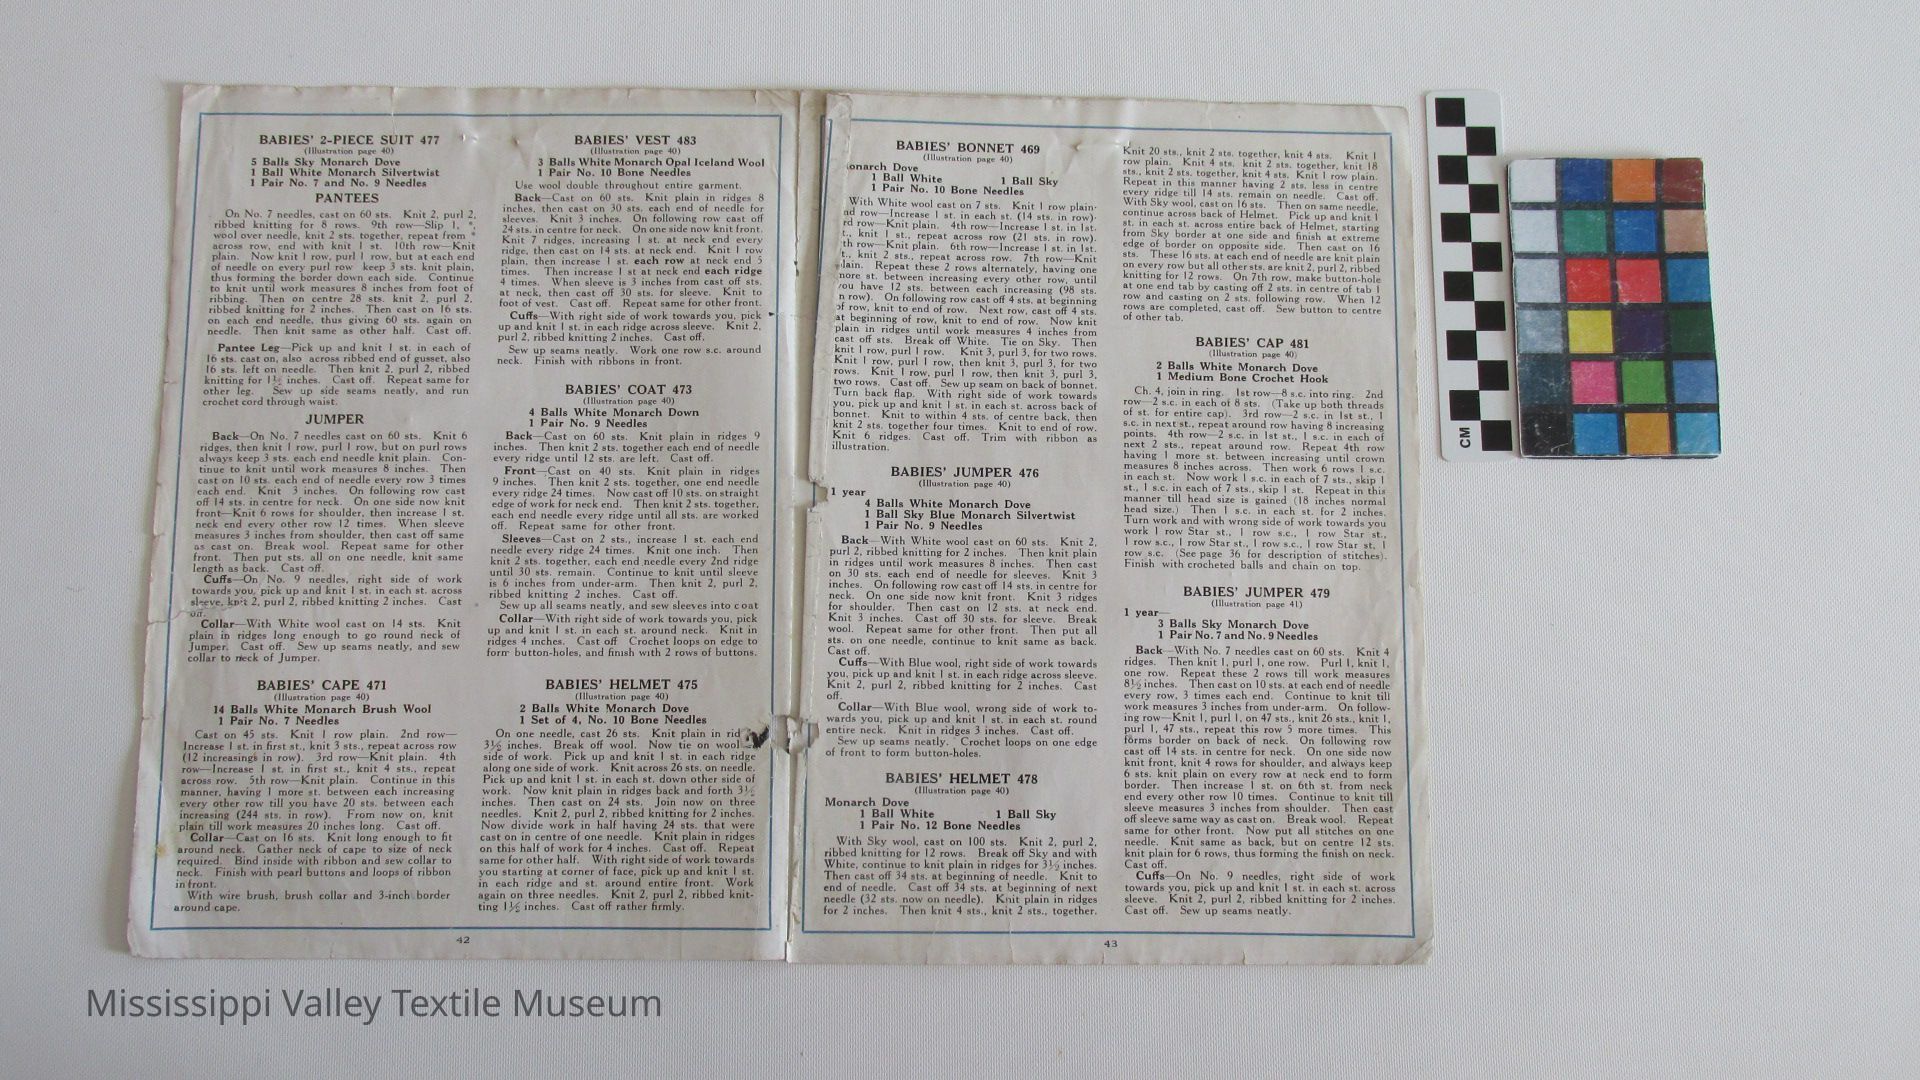 BABIES' 2-PIECE SUIT 477
(Illustration page 40)
5 Balls Sky Monarch Dove
1 Ball White Monarch Silvertwist
1 Pair No. 7 and No. 9 Needles
PANTEES
On No. 7 needles, cast on 60 sts. Knit 2, purl 2,
ribbed knitting for 8 rows. 9th row—Slip 1, *
wool over needle, knit 2 sts. together, repeat from *
across row, end with knit 1 st. 10th row—Knit
plain. Now knit 1 row, purl 1 row, but at each end
of needle on every purl row keep 3 sts. knit plain,
thus forming the border down each side. Continue
to knit until work measures 8 inches from foot of
ribbing. Then on centre 28 sts. knit 2, purl 2,
ribbed knitting for 2 inches. Then cast on 16 sts.
on each end needle, thus giving 60 sts. again on
needle. Then knit same as other half. Cast off.
Pantee Leg—Pick up and knit 1 st. in each of
16 sts. cast on, also across ribbed end of gusset, also
16 sts. left on needle. Then knit 2, purl 2, ribbed
knitting for 1½ inches. Cast off. Repeat same for
other leg. Sew up side seams neatly, and run
crochet cord through waist.
JUMPER
Back—On No. 7 needles cast on 60 sts. Knit 6
ridges, then knit 1 row, purl 1 row, but on purl rows
always keep 3 sts. each end needle knit plain. Con-
tinue to knit until work measures 8 inches. Then
cast on 10 sts. each end of needle every row 3 times
each end. Knit 3 inches. On following row cast
off 14 sts. in centre for neck. On one side now knit
front—Knit 6 rows for shoulder, then increase 1 st.
neck end every other row 12 times. When sleeve
measures 3 inches from shoulder, then cast off same
as cast on. Break wool. Repeat same for other
front. Then put sts. all on one needle, knit same
length as back. Cast off.
Cuffs—On No. 9 needles, right side of work
towards you, pick up and knit 1 st. in each st. across
sleeve, knit 2, purl 2, ribbed knitting 2 inches. Cast
off.
Collar—With White wool cast on 14 sts. Knit
plain in ridges long enough to go round neck of
Jumper. Cast off. Sew up seams neatly, and sew
collar to neck of Jumper.
BABIES' CAPE 471
(Illustration page 40)
14 Balls White Monarch Brush Wool
1 Pair No. 7 Needles
Cast on 45 sts. Knit 1 row plain. 2nd row—
Increase 1 st. in first st., knit 3 sts., repeat across row
(12 increasings in row). 3rd row—Knit plain. 4th
row—Increase 1 st. in first st., knit 4 sts., repeat
across row. 5th row—Knit plain. Continue in this
manner, having 1 more st. between each increasing
every other row till you have 20 sts. between each
increasing (244 sts. in row). From now on, knit
plain till work measures 20 inches long. Cast off.
Collar—Cast on 16 sts. Knit long enough to fit
around neck. Gather neck of cape to size of neck
required. Bind inside with ribbon and sew collar to
neck. Finish with pearl buttons and loops of ribbon
in front.
With wire brush, brush collar and 3-inch border
around cape.
BABIES' VEST 483
(Illustration page 40)
3 Balls White Monarch Opal Iceland Wool
1 Pair No. 10 Bone Needles
Use wool double throughout entire garment.
Back—Cast on 60 sts. Knit plain in ridges 8
inches, then cast on 30 sts. each end of needle for
sleeves. Knit 3 inches. On following row cast off
24 sts. in centre for neck. On one side now knit front.
Knit 7 ridges, increasing 1 st. at neck end every
ridge, then cast on 14 sts. at neck end. Knit 1 row
plain, then increase 1 st. each row at neck end 5
times. Then increase 1 st at neck end each ridge
4 times. When sleeve is 3 inches from cast off sts.
at neck, then cast off 30 sts. for sleeve. Knit to
foot of vest. Cast off. Repeat same for other front.
Cuffs—With right side of work towards you, pick
up and knit 1 st. in each ridge across sleeve. Knit 2,
purl 2, ribbed knitting 2 inches. Cast off.
Sew up seams neatly. Work one row s.c. around
neck. Finish with ribbons in front.
BABIES' COAT 473
(Illustration page 40)
4 Balls White Monarch Down
1 Pair No. 9 Needles
Back—Cast on 60 sts. Knit plain in ridges 9
inches. Then knit 2 sts. together each end of needle
every ridge until 12 sts. are left. Cast off.
Front—Cast on 40 sts. Knit plain in ridges
9 inches. Then knit 2 sts. together, one end needle
every ridge 24 times. Now cast off 10 sts. on straight
edge of work for neck end. Then knit 2 sts. together,
each end needle every ridge until all sts. are worked
off. Repeat same for other front.
Sleeves—Cast on 2 sts., increase 1 st. each end
needle every ridge 24 times. Knit one inch. Then
knit 2 sts. together, each end needle every 2nd ridge
until 30 sts. remain. Continue to knit until sleeve
is 6 inches from under-arm. Then knit 2, purl 2,
ribbed knitting 2 inches. Cast off.
Sew up all seams neatly, and sew sleeves into coat
Collar—With right side of work towards you, pick
up and knit 1 st. in each st. around neck. Knit in
ridges 4 inches. Cast off Crochet loops on edge to
form button-holes, and finish with 2 rows of buttons.
BABIES' HELMET 475
(Illustration page 40)
2 Balls White Monarch Dove
1 Set of 4, No. 10 Bone Needles
On one needle, cast 26 sts. Knit plain in
3½ inches. Break off wool. Now tie on wool
side of work. Pick up and knit 1 st. in each ridge
along one side of work. Knit across 26 sts. on needle.
Pick up and knit 1 st. in each st. down other side of
work. Now knit plain in ridges back and forth 3½
inches. Then cast on 24 sts. Join now on three
needles. Knit 2, purl 2, ribbed knitting for 2 inches.
Now divide work in half having 24 sts. that were
cast on in centre of one needle. Knit plain in ridges
on this half of work for 4 inches. Cast off. Repeat
same for other half. With right side of work towards
you starting at corner of face, pick up and knit 1 st.
in each ridge and st. around entire front. Work
again on three needles. Knit 2, purl 2, ribbed knit-
ting 1½ inches. Cast off rather firmly.
42
BABIES' BONNET 469
(Illustration page 40)
onarch Dove
1 Ball White 1 Ball Sky
1 Pair No. 10 Bone Needles
With White wool cast on 7 sts. Knit 1 row plain.
nd row—Increase 1 st. in each st. (14 sts. in row).
rd row—Knit plain. 4th row—Increase 1 st. in 1st.
t., knit 1 st., repeat across row (21 sts. in row).
th row—Knit plain. 6th row—Increase 1 st. in 1st.
t., knit 2 sts., repeat across row. 7th row—Knit
lain. Repeat these 2 rows alternately, having one
more st. between increasing every other row, until
you have 12 sts. between each increasing (98 sts.
n row). On following row cast off 4 sts. at beginning
of row, knit to end of row. Next row, cast off 4 sts.
at beginning of row, knit to end of row. Now knit
plain in ridges until work measures 4 inches from
cast off sts. Break off White. Tie on Sky. Then
knit 1 row, purl 1 row. Knit 3, purl 3, for two rows.
Knit 1 row, purl 1 row, then knit 3, purl 3, for two
rows. Knit 1 row, purl 1 row, then knit 3, purl 3,
two rows. Cast off. Sew up seam on back of bonnet.
Turn back flap. With right side of work towards
you, pick up and knit 1 st. in each st. across back of
bonnet. Knit to within 4 sts. of centre back, then
knit 2 sts. together four times. Knit to end of row.
Knit 6 ridges. Cast off. Trim with ribbon as
illustration.
BABIES' JUMPER 476
(Illustration page 40)
1 year
4 Balls White Monarch Dove
1 Ball Sky Blue Monarch Silvertwist
1 Pair No. 9 Needles
Back—With White wool cast on 60 sts. Knit 2,
purl 2, ribbed knitting for 2 inches. Then knit plain
in ridges until work measures 8 inches. Then cast
on 30 sts. each end of needle for sleeves. Knit 3
inches. On following row cast off 14 sts. in centre for
neck. On one side now knit front. Knit 3 ridges
for shoulder. Then cast on 12 sts. at neck end.
Knit 3 inches. Cast off 30 sts. for sleeve. Break
wool. Repeat same for other front. Then put all
sts. on one needle, continue to knit same as back.
Cast off.
Cuffs—With Blue wool, right side of work towards
you, pick up and knit 1 st. in each ridge across sleeve.
Knit 2, purl 2, ribbed knitting for 2 inches. Cast
off.
Collar—With Blue wool, wrong side of work to-
wards you, pick up and knit 1 st. in each st. round
entire neck. Knit in ridges 3 inches. Cast off.
Sew up seams neatly. Crochet loops on one edge
of front to form button-holes.
BABIES' HELMET 478
(Illustration page 40)
Monarch Dove
1 Ball White 1 Ball Sky
1 Pair No. 12 Bone Needles
With Sky wool, cast on 100 sts. Knit 2, purl 2,
ribbed knitting for 12 rows. Break off Sky and with
White, continue to knit plain in ridges for 3½ inches.
Then cast off 34 sts. at beginning of needle. Knit to
end of needle. Cast off 34 sts. at beginning of next
needle (32 sts. now on needle). Knit plain in ridges
for 2 inches. Then knit 4 sts., knit 2 sts., together.
Knit 20 sts., knit 2 sts. together, knit 4 sts. Knit 1
row plain. Knit 4 sts. knit 2 sts. together, knit 18
sts., knit 2 sts. together, knit 4 sts. Knit 1 row plain.
Repeat in this manner having 2 sts. less in centre
every ridge till 14 sts. remain on needle. Cast off.
With Sky wool, cast on 16 sts. Then on same needle,
continue across back of Helmet. Pick up and knit 1
st. in each st. across entire back of Helmet, starting
from Sky border at one side and finish at extreme
edge of border on opposite side. Then cast on 16
sts. These 16 sts. at each end of needle are knit plain
on every row but all other sts. are knit 2, purl 2, ribbed
knitting for 12 rows. On 7th row, make button-hole
at one end tab by casting off 2 sts. in centre of tab 1
row and casting on 2 sts. following row. When 12
rows are completed, cast off. Sew button to centre
of other tab.
BABIES' CAP 481
(Illustration page 40)
2 Balls White Monarch Dove
1 Medium Bone Crochet Hook
Ch. 4, join in ring. 1st row—8 s.c. into ring. 2nd
row—2 s.c. in each of 8 sts. (Take up both threads
of st. for entire cap). 3rd row—2 s.c. in 1st st., 1
s.c. in next st., repeat around row having 8 increasing
points. 4th row—2 s.c. in 1st st., 1 s.c. in each of
next 2 sts., repeat around row. Repeat 4th row
having 1 more st. between increasing until crown
measures 8 inches across. Then work 6 rows 1 s.c.
in each st. Now work 1 s.c. in each of 7 sts., skip 1
st., 1 s.c. in each of 7 sts., skip 1 st. Repeat in this
manner till head size is gained (18 inches normal
head size.) Then 1 s.c. in each st. for 2 inches.
Turn work and with wrong side of work towards you
work 1 row Star st., 1 row s.c., 1 row Star st.,
1 row s.c., 1 row Star st., 1 row s.c., 1 row Star st, 1
row s.c. (See page 36 for description of stitches).
Finish with crocheted balls and chain on top.
BABIES' JUMPER 479
(Illustration page 41)
1 year—
3 Balls Sky Monarch Dove
1 Pair No. 7 and No. 9 Needles
Back—With No. 7 needles cast on 60 sts. Knit 4
ridges. Then knit 1, purl 1, one row. Purl 1, knit 1,
one row. Repeat these 2 rows till work measures
8½ inches. Then cast on 10 sts. at each end of needle
every row, 3 times each end. Continue to knit till
work measures 3 inches from under-arm. On follow-
ing row—Knit 1, purl 1, on 47 sts., knit 26 sts., knit 1,
purl 1, 47 sts., repeat this row 5 more times. This
forms border on back of neck. On following row
cast off 14 sts. in centre for neck. On one side now
knit front, knit 4 rows for shoulder, and always keep
6 sts. knit plain on every row at neck end to form
border. Then increase 1 st. on 6th st. from neck
end every other row 10 times. Continue to knit till
sleeve measures 3 inches from shoulder. Then cast
off sleeve same way as cast on. Break wool. Repeat
same for other front. Now put all stitches on one
needle. Knit same as back, but on centre 12 sts.
knit plain for 6 rows, thus forming the finish on neck.
Cast off.
Cuffs—On No. 9 needles, right side of work
towards you, pick up and knit 1 st. in each st. across
sleeve. Knit 2, purl 2, ribbed knitting for 2 inches.
Cast off. Sew up seams neatly.
43
CM
Mississippi Valley Textile Museum